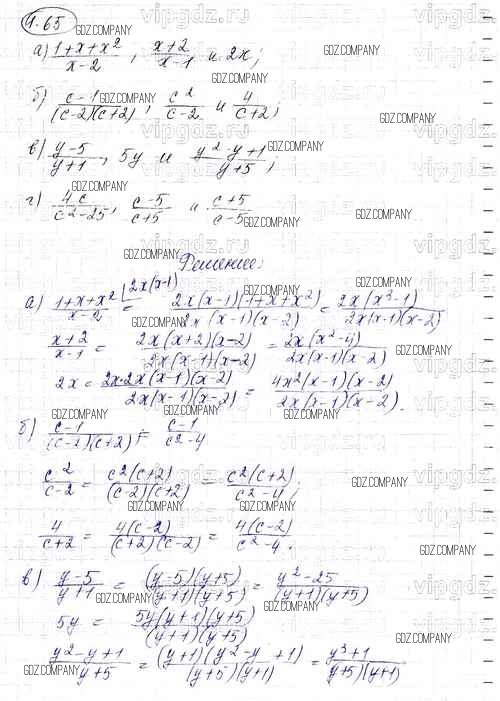 4.65
а) (1+x+x²)/(x-2), (x+2)/(x-1) и 2x;
б) (c-1)/((c-2)(c+2)), c²/(c-2) и 4/(c+2);
в) (y-5)/(y+1), 5y и (y²-y+1)/(y+5);
г) 4c/(c²-25), (c-5)/(c+5) и (c+5)/(c-5)
Решение:
а) (1+x+x²)/(x-2) |2x(x-1) = (2x(x-1)(1+x+x²))/(2x(x-1)(x-2)) = (2x(x³-1))/(2x(x-1)(x-2))
(x+2)/(x-1) = (2x(x+2)(x-2))/(2x(x-1)(x-2)) = (2x(x²-4))/(2x(x-1)(x-2))
2x = (2x·2x(x-1)(x-2))/(2x(x-1)(x-2)) = (4x²(x-1)(x-2))/(2x(x-1)(x-2)).
б) (c-1)/((c-2)(c+2)) = (c-1)/(c²-4)
c²/(c-2) = (c²(c+2))/((c-2)(c+2)) = (c²(c+2))/(c²-4);
4/(c+2) = (4(c-2))/((c+2)(c-2)) = (4(c-2))/(c²-4).
в) (y-5)/(y+1) = ((y-5)(y+5))/((y+1)(y+5)) = (y²-25)/((y+1)(y+5))
5y = (5y(y+1)(y+5))/((y+1)(y+5))
(y²-y+1)/(y+5) = ((y+1)(y²-y+1))/((y+5)(y+1)) = (y³+1)/((y+5)(y+1))
GDZ.COMPANY
vipgdz.ru